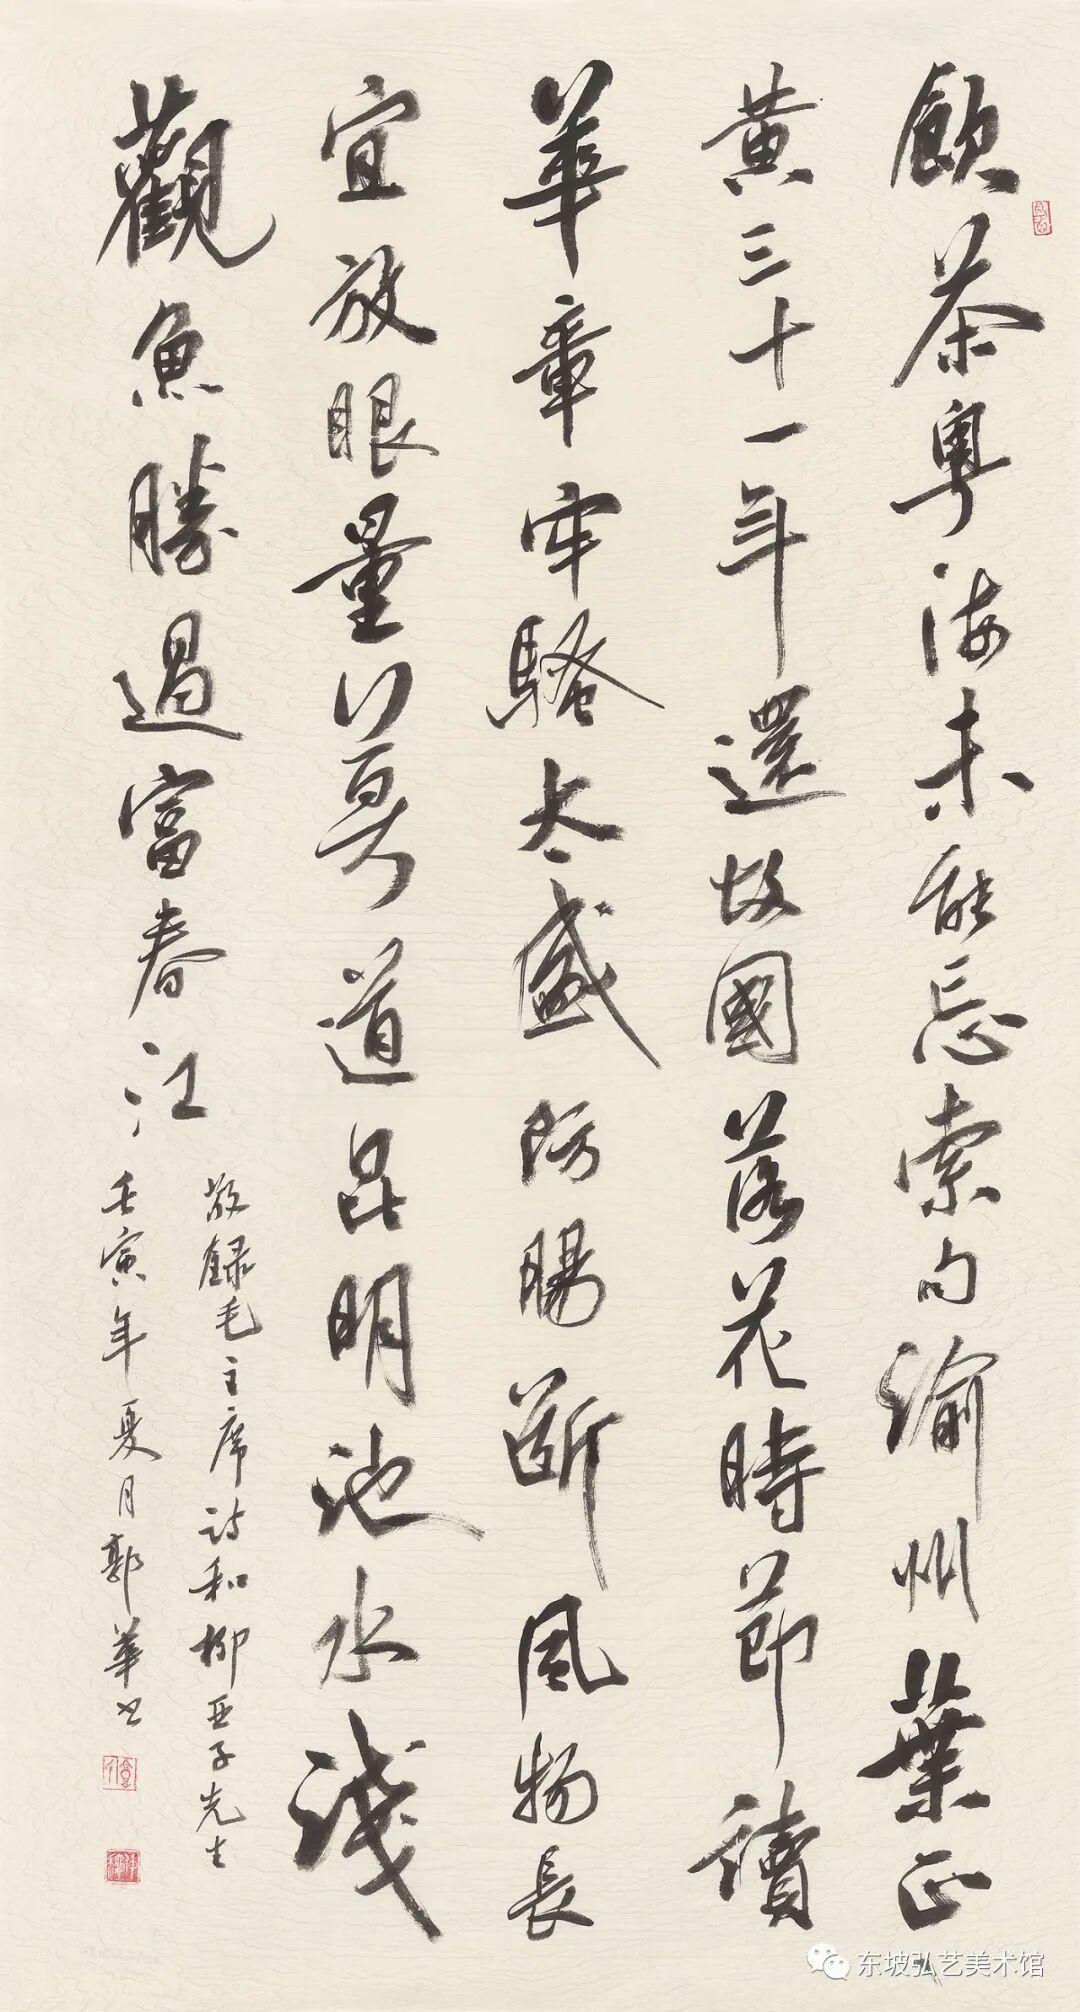 飲茶粵海未能忘索句渝州葉正
黄三十一年還故國落花時節讀
華章牢騷太盛防腸斷風物長
宜放眼量莫道昆明池水淺
觀魚勝過富春江
敬録毛主席詩和柳亚子先生
壬寅年夏月郭華书
东坡弘艺美术馆